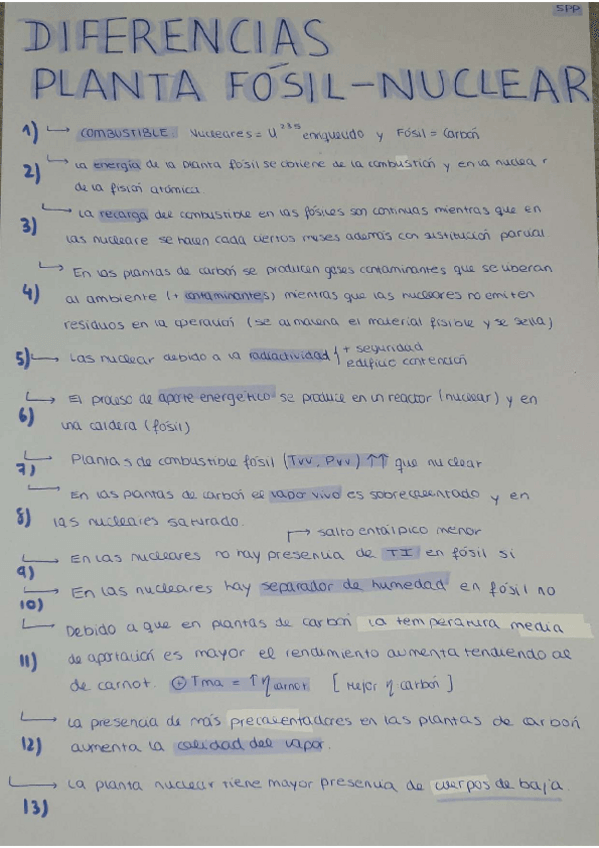 SPP
DIFERENCIAS
PLANTA FÓSIL-NUCLEAR
1) COMBUSTIBLE Nucleares = U²³⁵ enriquecido y Fósil = Carbón
2) La energía de la planta fósil se obtiene de la combustión y en la nuclear
de la fisión atómica.
3) La recarga del combustible en las fósiles son continuas mientras que en
las nucleare se hacen cada ciertos meses además con sustitución parcial
En las plantas de carbón se producen gases contaminantes que se liberan
4) al ambiente (+ contaminantes) mientras que las nucleares no emiten
residuos en la operación (se almacena el material fisible y se sella)
5) Las nuclear debido a la radiactividad { + seguridad
edificio contención
6) El proceso de aporte energético se produce en un reactor (nuclear) y en
una caldera (fósil)
7) Plantas de combustible fósil (Tvv, Pvv) ↑↑ que nuclear
En las plantas de carbón el vapor vivo es sobrecalentado y en
8) las nucleares saturado.
salto entálpico menor
9) En las nucleares no hay presencia de TI en fósil si
10) En las nucleares hay separador de humedad en fósil no
Debido a que en plantas de carbón la temperatura media
11) de aportación es mayor el rendimiento aumenta tendiendo al
de carnot. ⊕ Tma = ↑ η carnot [Mejor η carbón]
La presencia de más precalentadores en las plantas de carbón
12) aumenta la calidad del vapor.
La planta nuclear tiene mayor presencia de cuerpos de baja.
13)